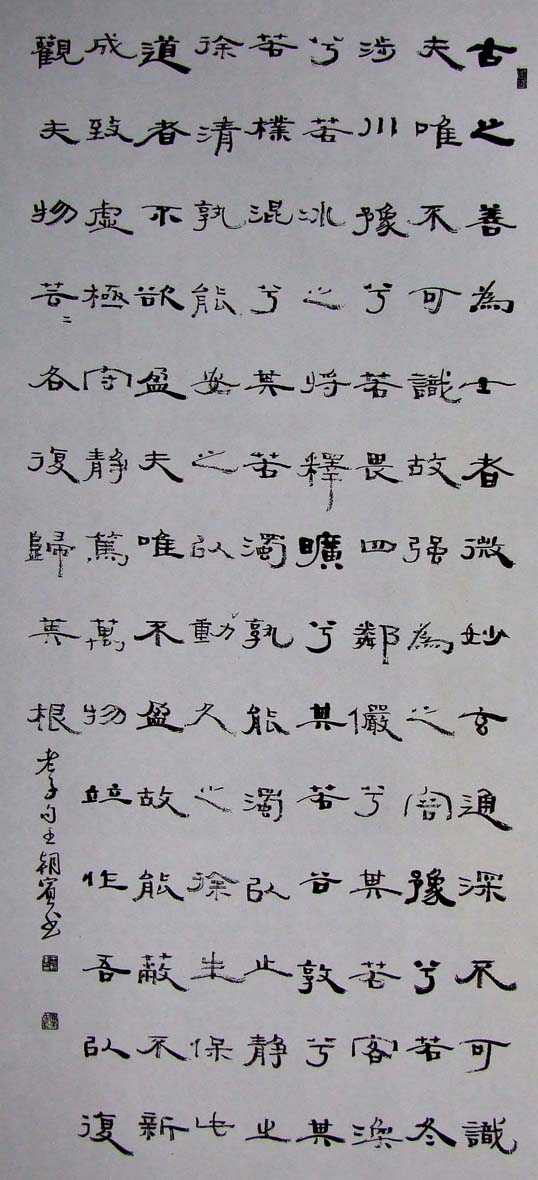 古之善為士者微妙玄通深不可識
夫唯不可識故强為之容豫兮若冬
涉川豫兮若畏四鄰儼兮其若客渙
兮若冰之將釋曠兮其若谷敦兮其
若樸混兮其若濁孰能濁以止靜之
徐清孰能安之以動久之徐生保此
道者不欲盈夫唯不盈故能蔽不新
成致虛極守靜篤萬物竝作吾以復
觀夫物芸〻各復歸其根
老子句王朝賓書